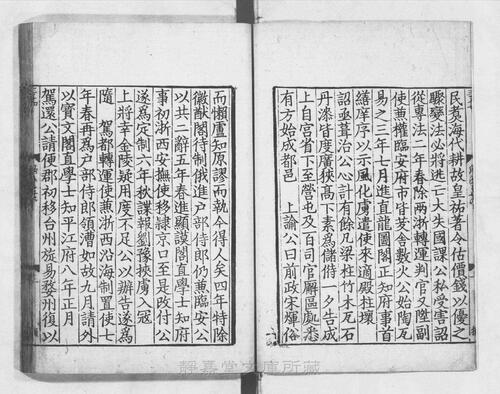 民煑海代耕故皇祐著令估價錢以優之
驟變法必將逃亡大失國課公私受害詔
從專法二年春除兩浙轉運判官又陞副
使兼權臨安府市皆茇舎數火公始陶瓦
易之三年七月進直龍圖閣正知府事首
繕庠序以示風化虜遣使來適殿柱壞
詔亟葺治公心計有餘凡梁柱竹木瓦石
丹漆皆度廣狹髙下素為儲偫一夕告成
上自宫省下至營屯及百司官廨區處悉
有方始成都邑　上諭公曰前政宋煇俗
而懶盧知原謬而執今得人矣四年特除
徽猷閣待制俄進户部侍郎仍兼臨安公
以共二辭五年春進顯謨閣直學士知府
事初浙西安撫使移𨽻京口至是改付公
遂為定制六年秋諜報劉豫挾虜入冦
上將幸金陵疑用度不足公以辦告遂為
隨　駕都轉運使兼浙西㳂海制置使七
年春再為户部侍郎領漕如故九月請外
以寳文閣直學士知平江府八年正月
駕還公請便郡初移台州旋易婺州復以
靜嘉堂文庫所蔵